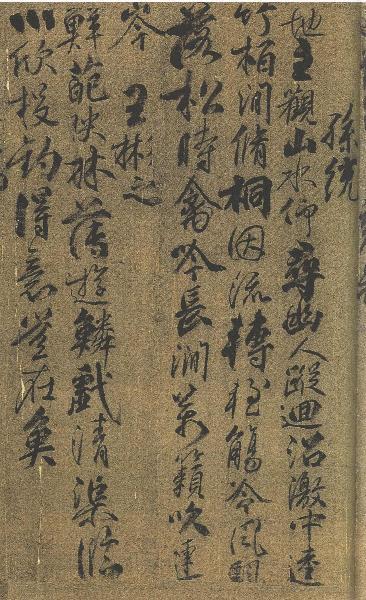 孫統
地主觀山水仰尋幽人蹤迴沼激中逵
竹柏澗脩桐因流轉輕觴冷風飄
落松時禽吟長澗萬籟吹連
岑 王彬之
鮮葩映林薄遊鱗戲清渠臨
川欣投釣得意豈在魚